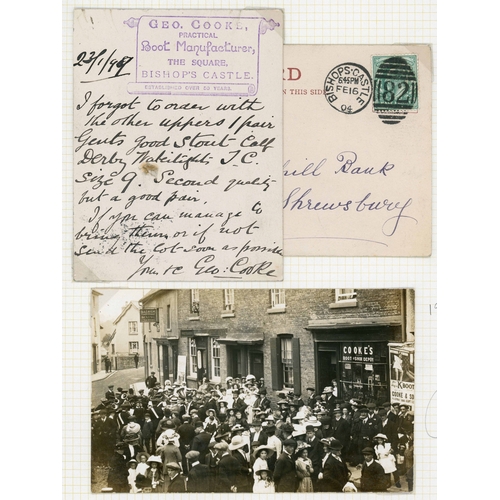 GEO. COOKE,
PRACTICAL
Boot Manufacturer,
THE SQUARE,
BISHOP'S CASTLE.
ESTABLISHED OVER 50 YEARS.
23/1/907
I forgot to order with
the other uppers 1 pair
Gents good Stout Calf
Derby Watertights T.C.
Size 9. Second quality
but a good pair.
If you can manage to
bring them or if not
send the lot soon as possible
Yours &c Geo: Cooke
RD
ON THIS SIDE
BISHOPS-CASTLE
6.45PM
FE 16
04
82
hill Bank
Shrewsbury
COOKE'S
BOOT & SHOE DEPOT
COOKE & SO